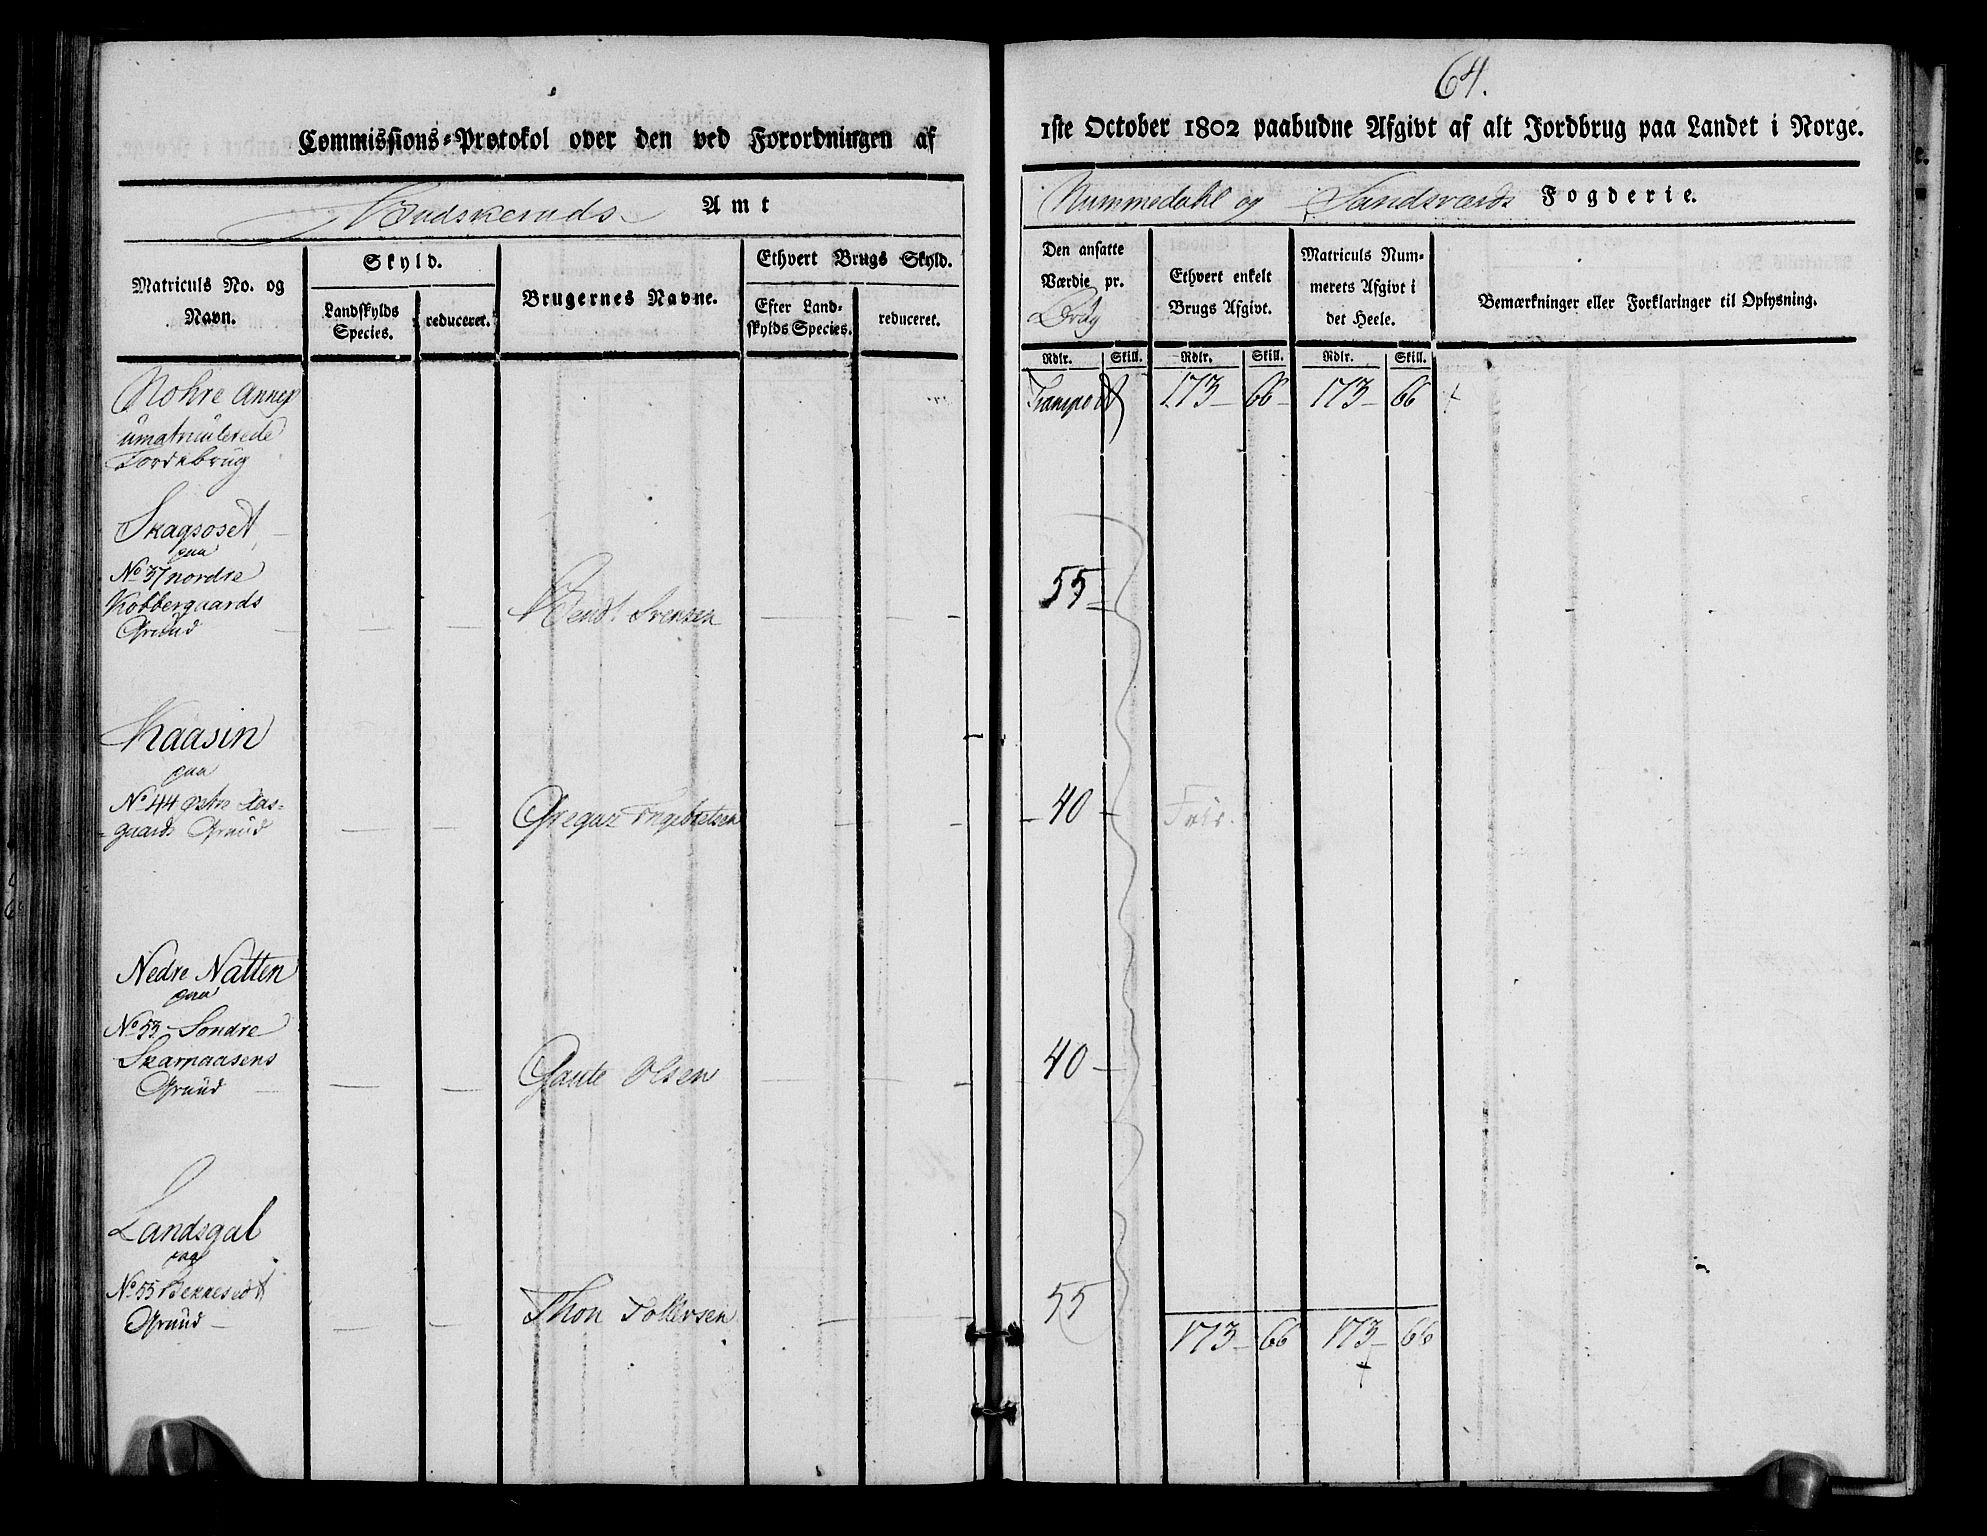 64.
Commissions-Protokol over den ved Forordningen af
1ste October 1802 paabudne Afgivt af alt Jordbrug paa Landet i Norge.
Budskeruds Amt
Nummedahl og Sandsværds Fogderie.
Matriculs No. og
Navn.
Skyld.
Landskylds
Species.
reduceret.
Brugernes Navne.
Ethvert Brugs Skyld.
Efter Land-
skylds Species.
reduceret.
Den ansatte
Værdie pr.
Brug
Ethvert enkelt
Brugs Afgivt.
Matriculs Num-
merets Afgivt i
det Heele.
Bemærkninger eller Forklaringer til Oplysning.
Rdlr. Skill. Rdlr. Skill. Rdlr. Skill.
Nohre Annex
umatriculerede
Jordebrug
Transport 173 - 66 - 173 - 66
Skagsoset
paa
No 37 nordre
Kobbergaards
Grund - Bendt Svensen 55 -
Kaasin
paa
No 44 østre
gaards Grund - Gregar Ingebretsen 40 -
Nedre Natten
paa
No 53 Søndre
Skarpaasens
Grund - Gaute Olsen 40 -
Landsgal
paa
No 55 Bekkesedt
Grund - Thon Tollevsen 55
173 - 66 173 - 66